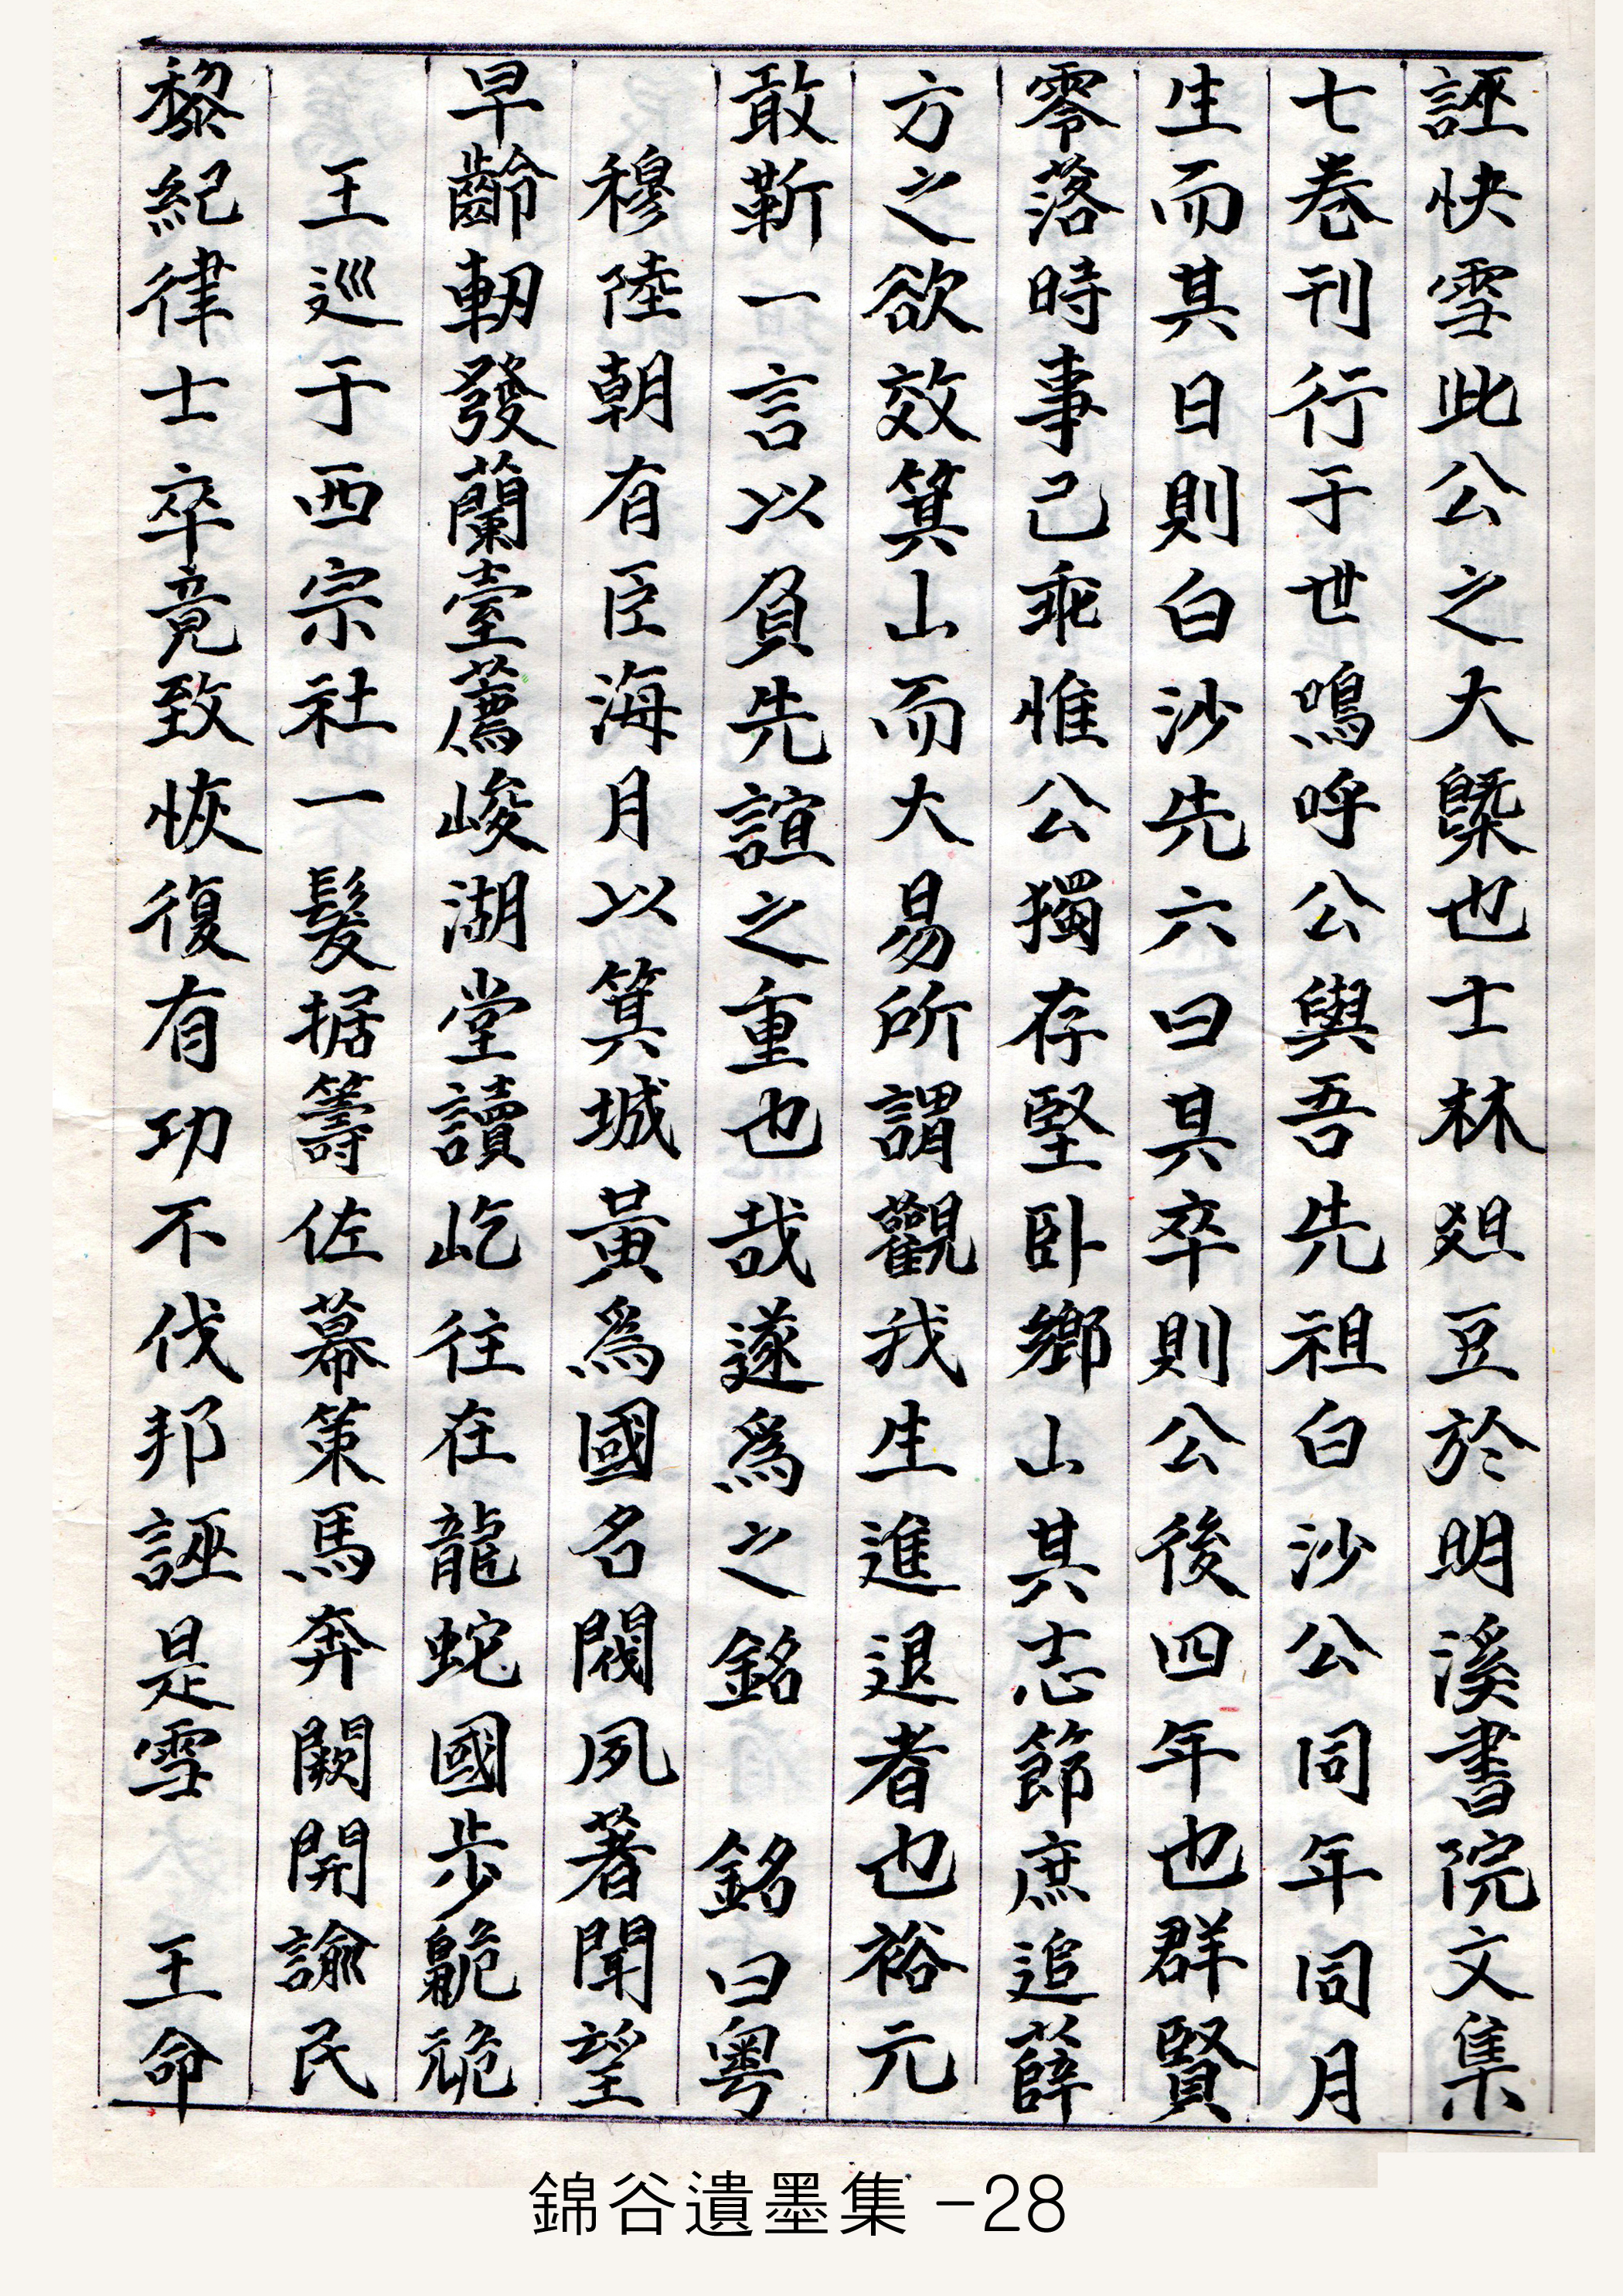 誣快雪此公之大槩也士林爼豆於明溪書院文集
七卷刊行于世鳴呼公與吾先祖白沙公同年同月
生而其日則白沙先六日其卒則公後四年也群賢
零落時事己乖惟公獨存堅卧鄉山其志節庶追薛
方之欲效箕山而大易所謂觀我生進退者也裕元
敢靳一言以負先誼之重也哉遂爲之銘 銘曰粵
穆陸朝有臣海月以箕城黃爲國名閥夙著聞望
早齡軔發蘭臺薦峻湖堂讀屹往在龍蛇國步臲卼
王巡于西宗社一髮据籌佐幕策馬奔闕開諭民
黎紀律士卒竟致恢復有功不伐邦誣是雪 王命
錦谷遺墨集 -28